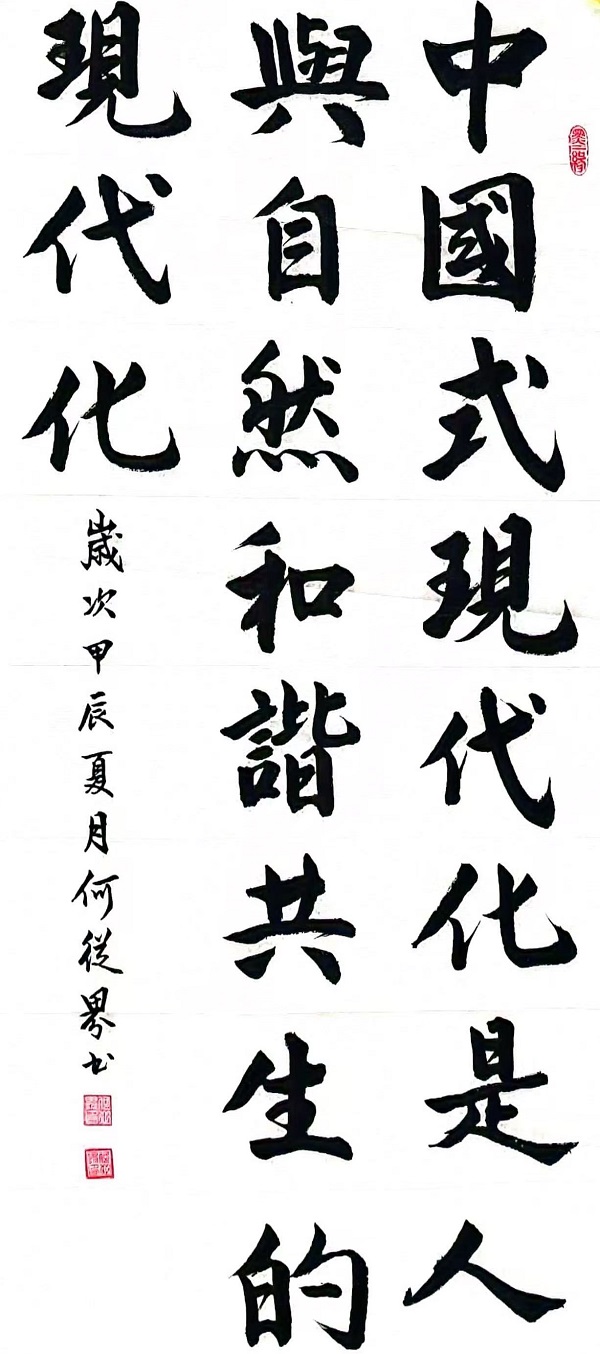 中國式現代化是人
與自然和諧共生的
現代化
歲次甲辰夏月何從界书